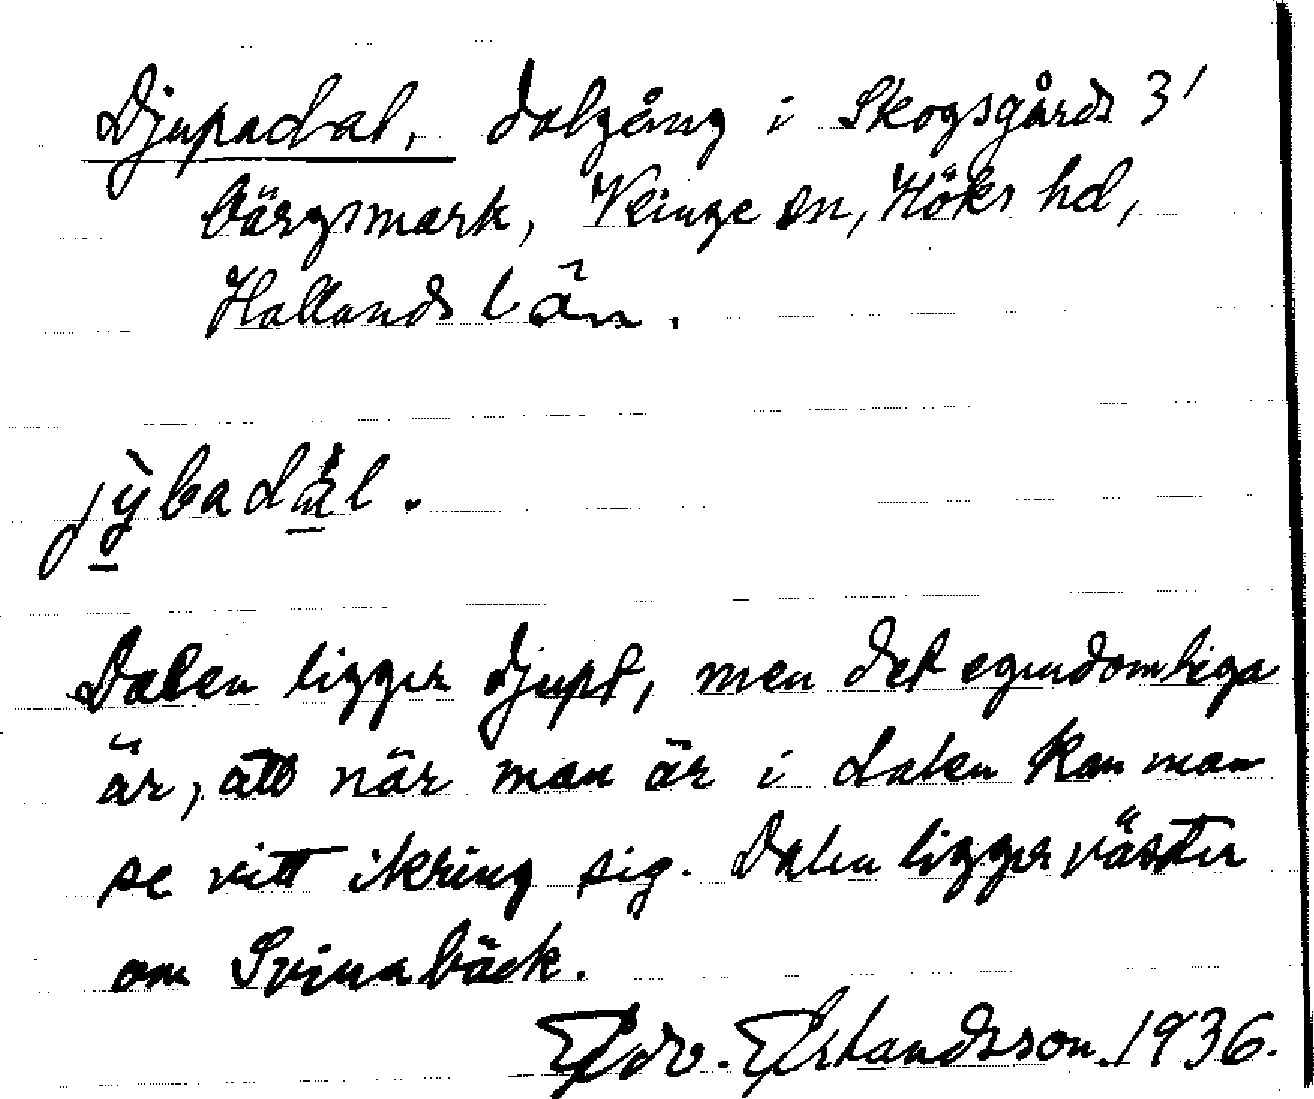 Djupadal, dalgång i Skogsgårds 3'
bärgsmark, Veinge sn, Höks hd,
Hallands län.
jỳbadál.
Dalen ligger djupt, men det egendomliga
är, att när man är i dalen kan man
se vitt ikring sig. Dalen ligger väster
om Svinabäck.
Edv. Erlandsson. 1936.